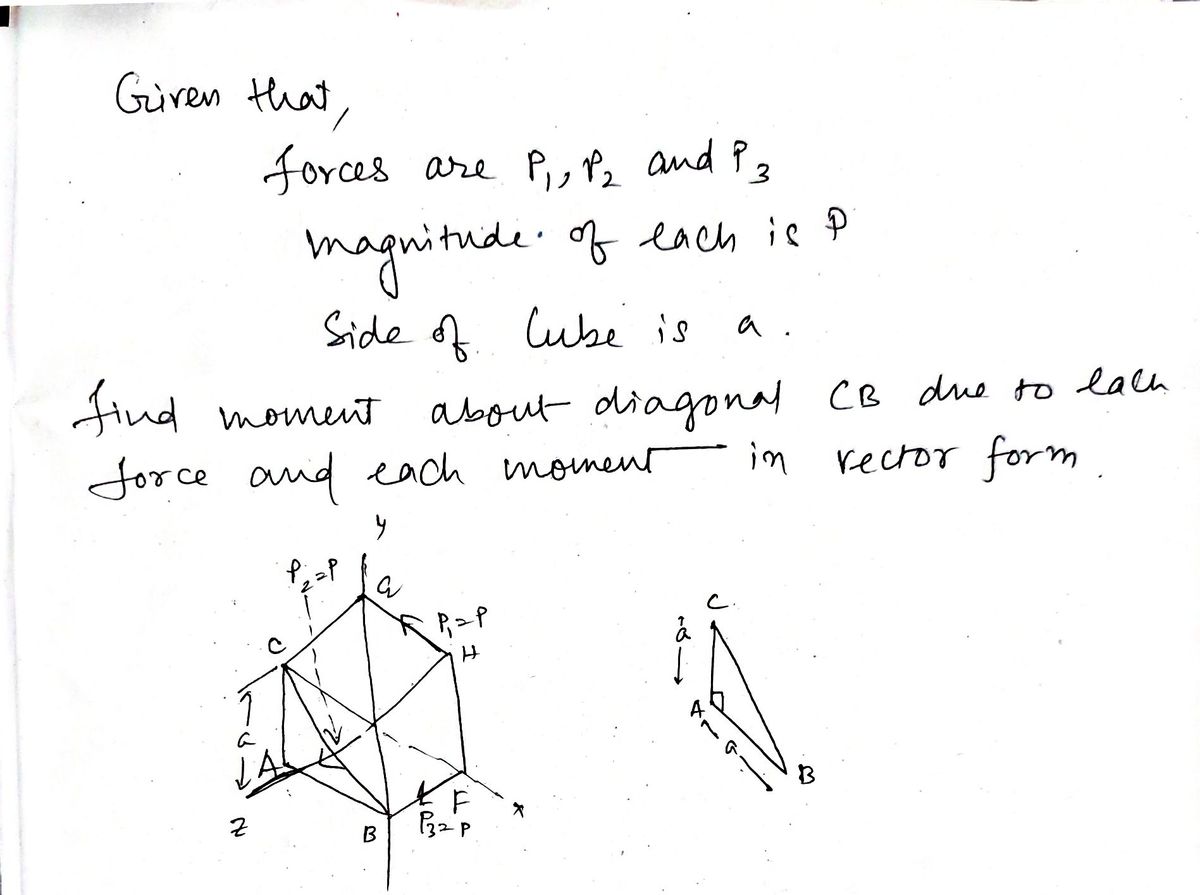 Given that,
forces are P₁, P₂ and P₃
magnitude of each is P
Side of Cube is a.
find moment about diagonal CB due to each
force and each moment in vector form.
y
P₂=P
G
P₁=P
C
H
a
A
Z
B
F
P₃=P
x
C
a
A
a
B